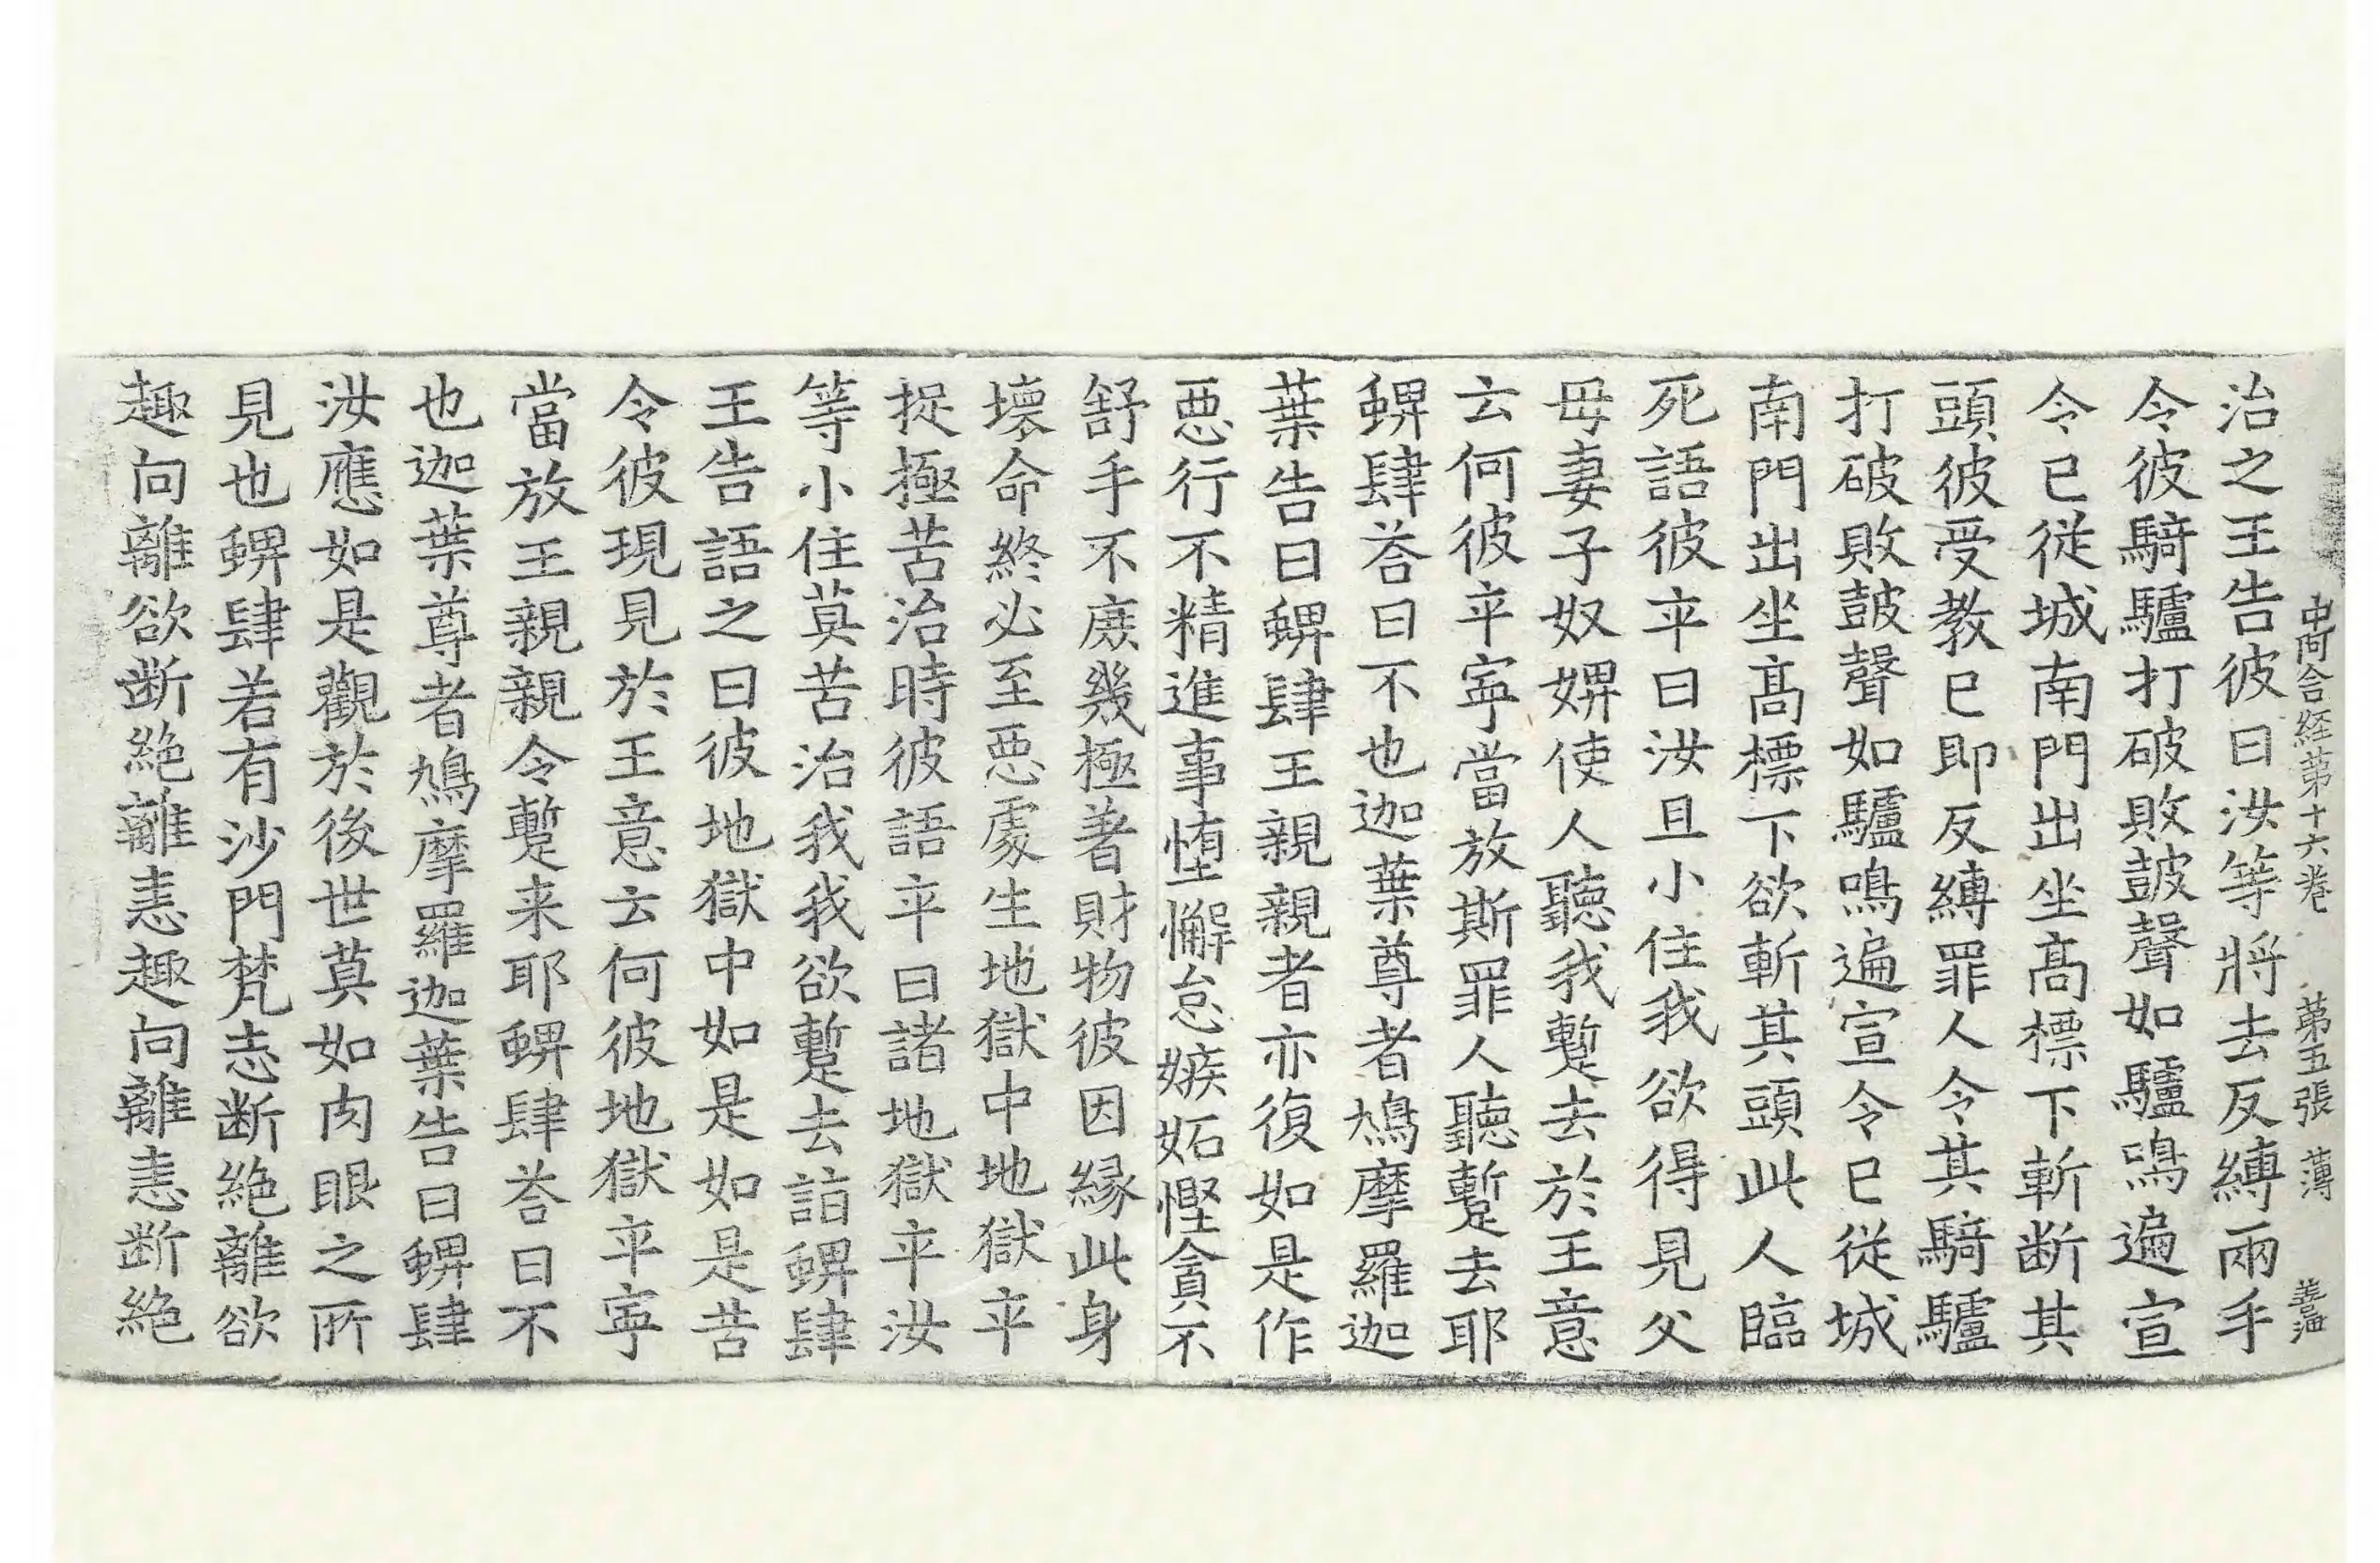 中阿含経苐十六巻 苐五張 薄 善海
治之王告彼曰汝等將去反縛兩手
令彼騎驢打破敗皷聲如驢鳴遍宣
令已従城南門出坐髙標下斬断其
頭彼受教已即反縛罪人令其騎驢
打破敗皷聲如驢鳴遍宣令已従城
南門出坐髙標下欲斬其頭此人臨
死語彼卒曰汝且小住我欲得見父
母妻子奴婢使人聽我蹔去於王意
云何彼卒寧當放斯罪人聽蹔去耶
蜱肆荅曰不也迦葉尊者鳩摩羅迦
葉告曰蜱肆王親親者亦復如是作
悪行不精進事堕懈怠嫉妬慳貪不
舒手不庻幾極著財物彼因縁此身
壞命終必至悪處生地獄中地獄卒
捉極苦治時彼語卒曰諸地獄卒汝
等小住莫苦治我我欲蹔去詣蜱肆
王告語之曰彼地獄中如是如是苦
令彼現見於王意云何彼地獄卒寧
當放王親親令蹔来耶蜱肆荅曰不
也迦葉尊者鳩摩羅迦葉告曰蜱肆
汝應如是觀於後世莫如肉眼之所
見也蜱肆若有沙門梵志断絶離欲
趣向離欲断絶離恚趣向離恚断絶